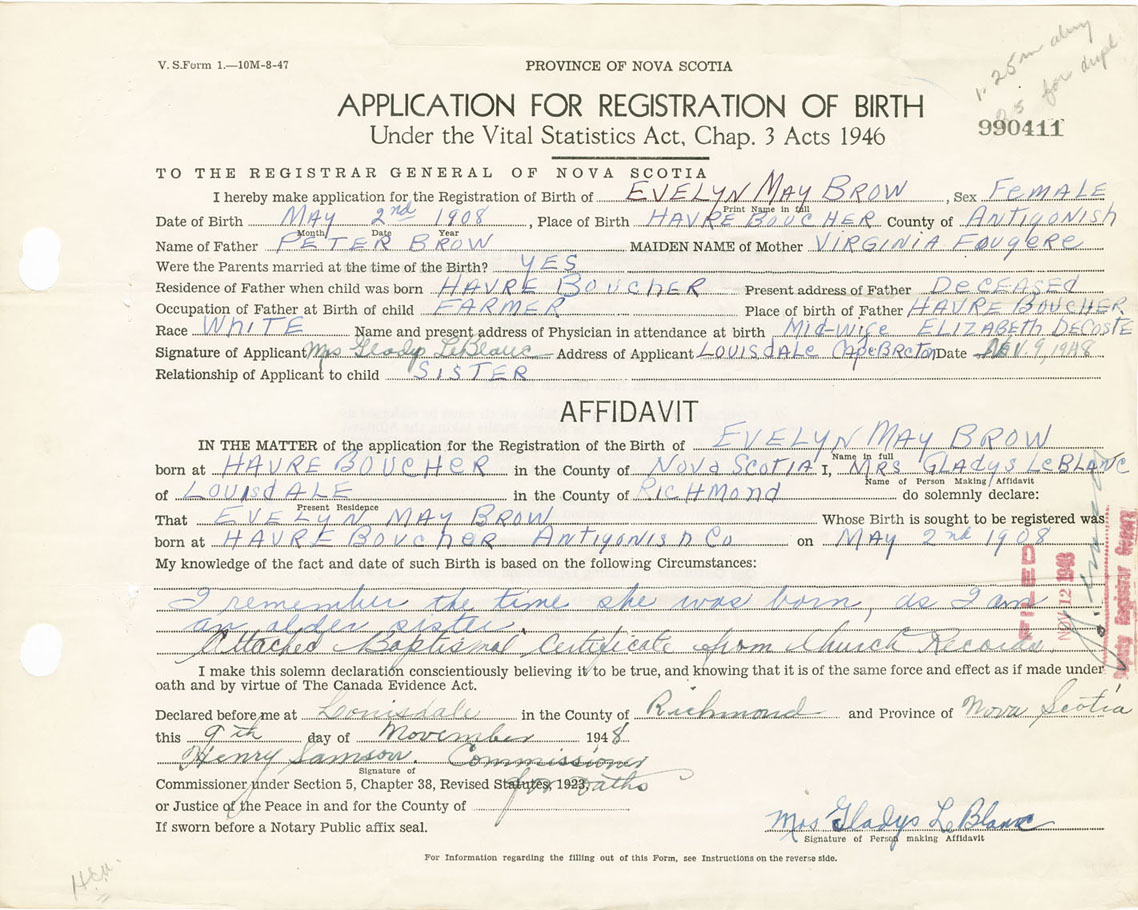 V. S.Form 1.—10M-8-47
PROVINCE OF NOVA SCOTIA
1.25 m
25 for dupl
APPLICATION FOR REGISTRATION OF BIRTH
990411
Under the Vital Statistics Act, Chap. 3 Acts 1946
TO THE REGISTRAR GENERAL OF NOVA SCOTIA
I hereby make application for the Registration of Birth of EVELYN MAY BROW, Sex FeMALE
Print Name in full
Date of Birth MAY 2nd 1908, Place of Birth HAVRE BOUCHER County of Antigonish
Month Date Year
Name of Father PETER BROW MAIDEN NAME of Mother VIRGINIA Fougere
Were the Parents married at the time of the Birth? YES
Residence of Father when child was born HAVRE BoucHER Present address of Father DeceASed
Occupation of Father at Birth of child FARMER Place of birth of Father HAVRE BOUCHER
Race WHITE Name and present address of Physician in attendance at birth Mid-wife ELIZABETH DeCOSTE
Signature of Applicant Mrs Glady LeBlanc Address of Applicant LOUISDALE CAPE BRETON Date Nov. 9, 1948
Relationship of Applicant to child SISTER
AFFIDAVIT
IN THE MATTER of the application for the Registration of the Birth of EVELYN MAY BROW
Name in full
born at HAVRE BOUCHER in the County of NOVA SCOTIA I, MRS GLADYS LeBLANC
Name of Person Making Affidavit
of LOUISdALE in the County of RICHMOND do solemnly declare:
Present Residence
That EVELYN MAY BROW Whose Birth is sought to be registered was
born at HAVRE BOUCHER Antigonish Co on MAY 2nd 1908
My knowledge of the fact and date of such Birth is based on the following Circumstances:
I remember the time she was born, as I am
an older sister.
Attached Baptismal Certificate from Church Records.
FILED
NOV 12 1948
Deputy Registrar General
I make this solemn declaration conscientiously believing it to be true, and knowing that it is of the same force and effect as if made under
oath and by virtue of The Canada Evidence Act.
Declared before me at Louisdale in the County of Richmond and Province of Nova Scotia
this 9th day of November 1948
Henry Samson. Commissioner
Signature of
for oaths
Commissioner under Section 5, Chapter 38, Revised Statutes, 1923,
or Justice of the Peace in and for the County of
If sworn before a Notary Public affix seal.
Mrs Gladys LeBlanc
Signature of Person making Affidavit
For Information regarding the filling out of this Form, see Instructions on the reverse side.